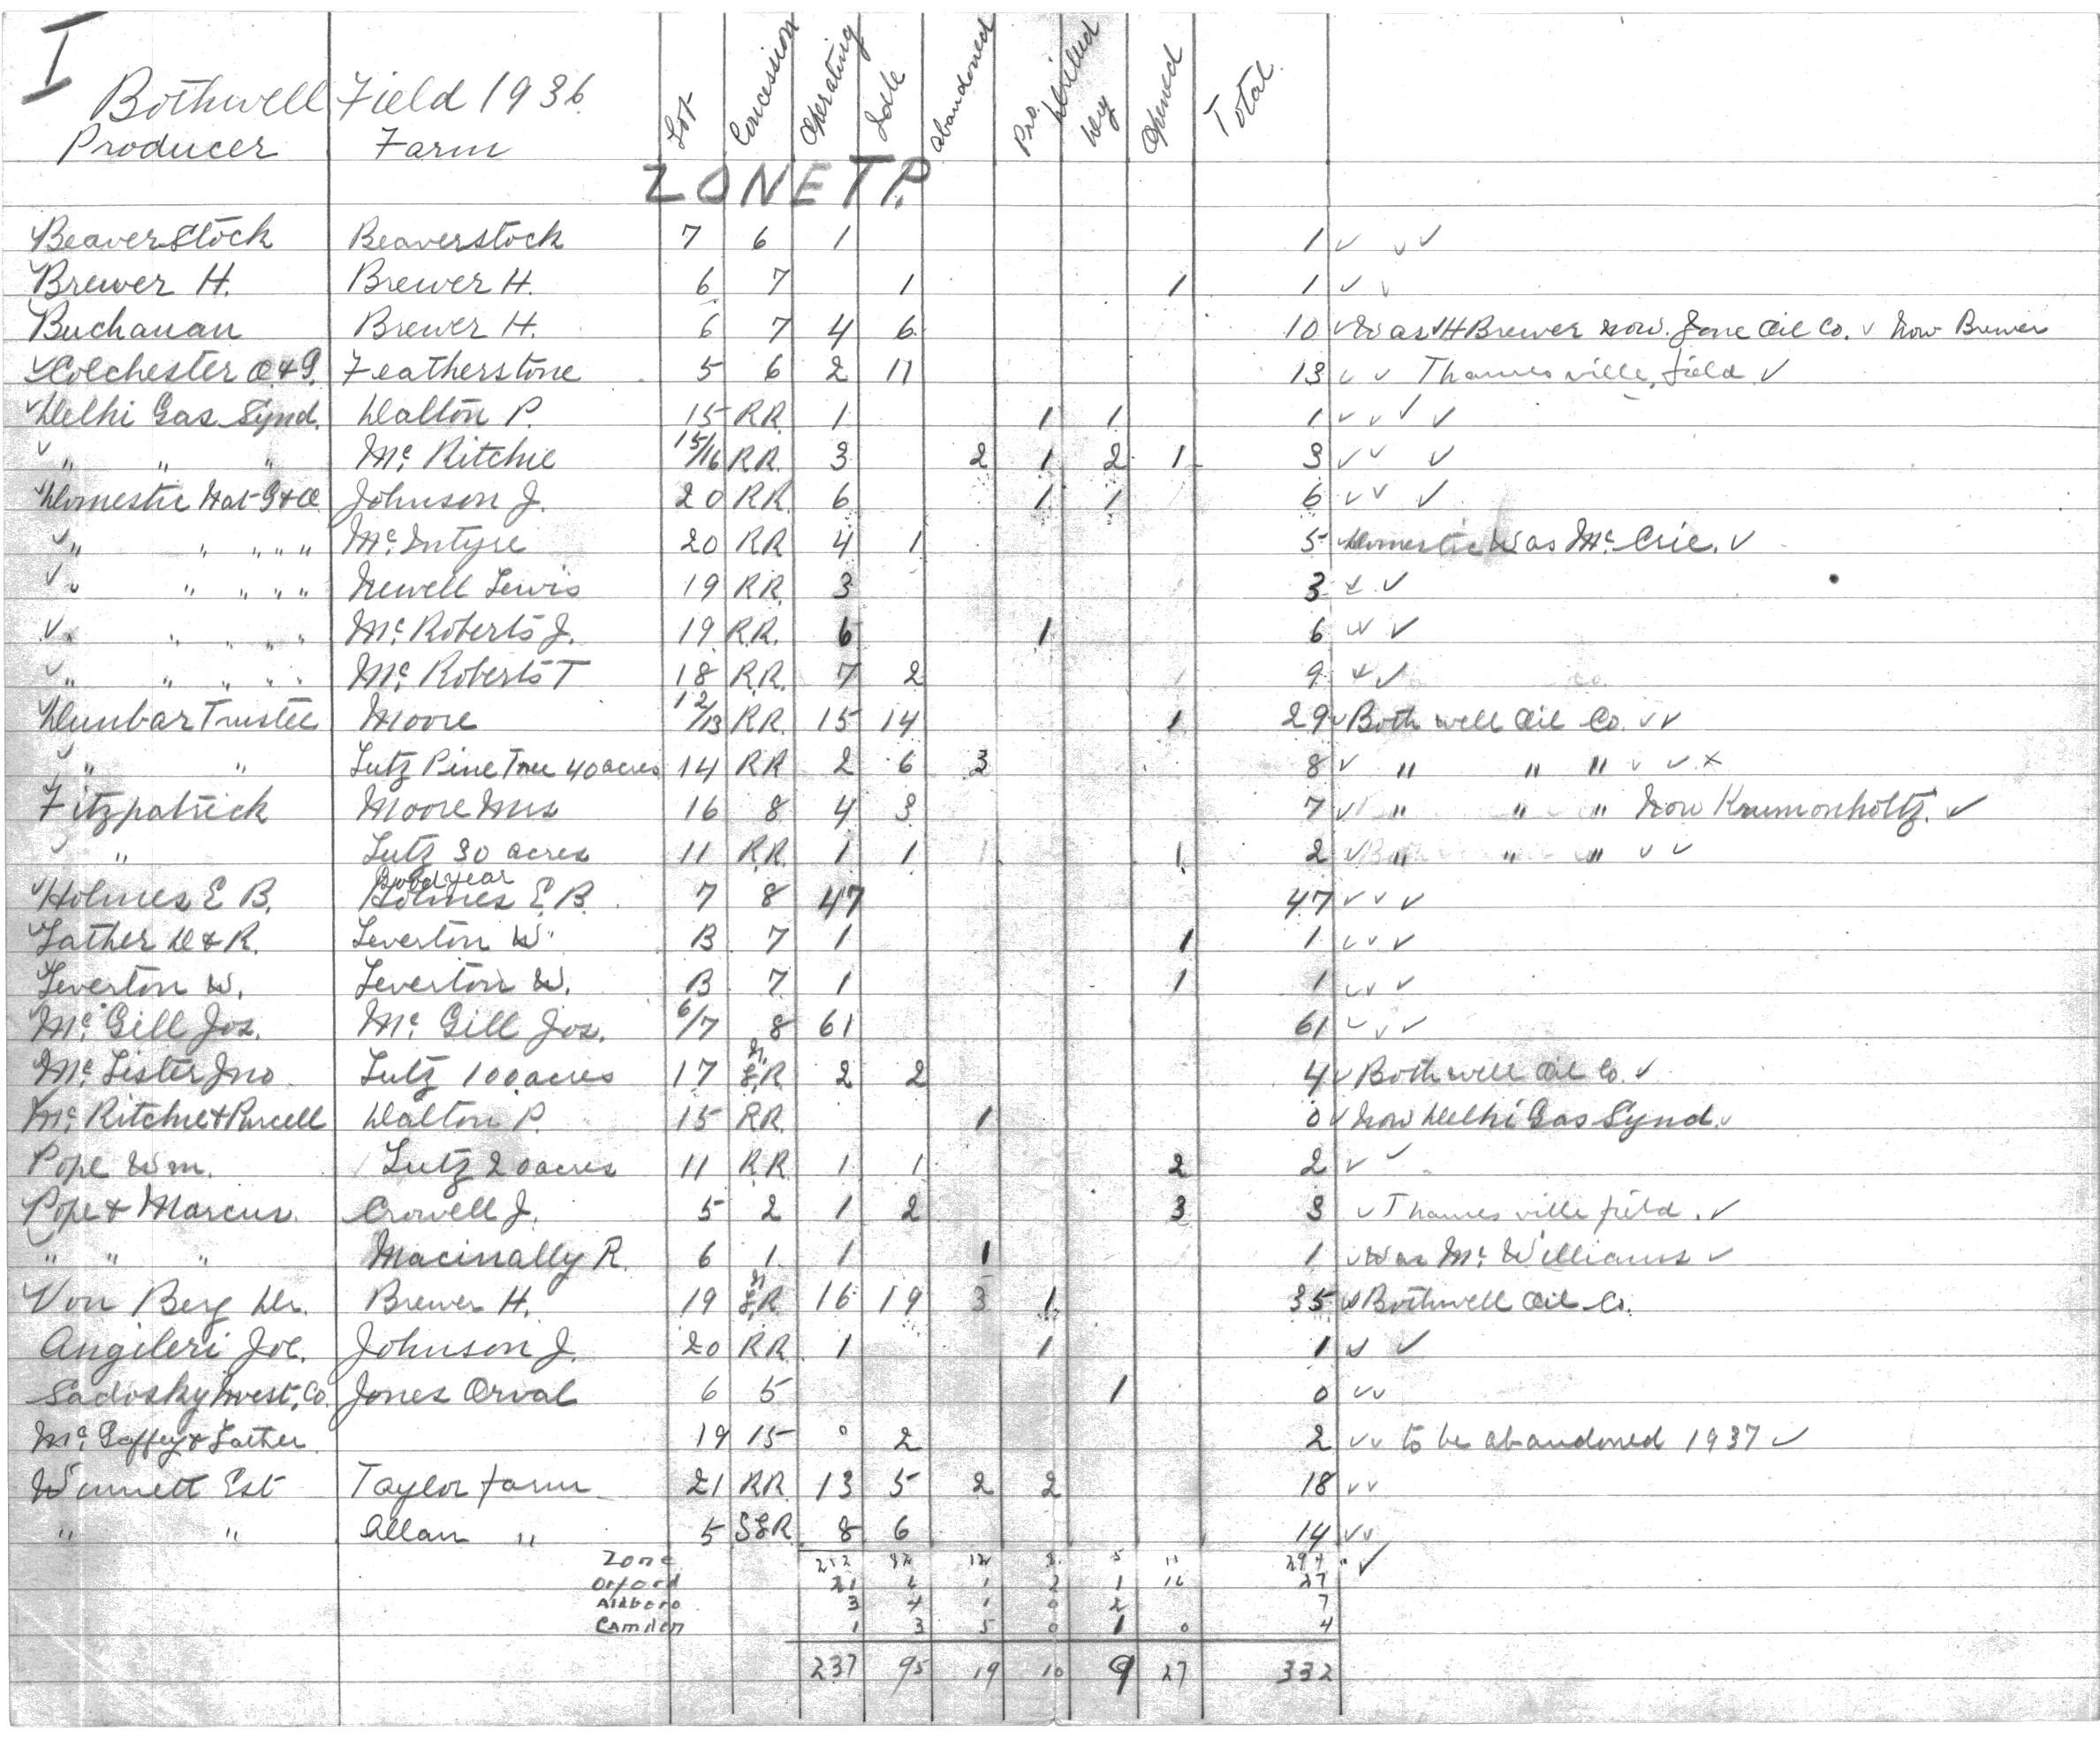 I
Bothwell Field 1936
Producer Farm Lot Concession Operating Idle Abandoned Pro. Drilled Dry Opened Total
ZONE TP.
Beaverstock Beaverstock 7 6 1 1
Brewer H. Brewer H. 6 7 1 1 1
Buchanan Brewer H. 6 7 4 6 10 Was H Brewer now Zone Oil Co. Now Brewer
Colchester O. & G. Featherstone 5 6 2 11 13 Thamesville field
Delhi Gas Synd. Dalton P. 15 RR. 1 1 1 1
" " " Mc Ritchie 15/16 RR. 3 2 1 2 1 3
Domestic Nat G & O Johnson J. 20 RR. 6 1 1 6
" " " " " Mc Intyre 20 RR 4 1 5 Domestic Was Mc Crie.
" " " " " Newell Lewis 19 RR. 3 3
" " " " " Mc Roberts J. 19 R.R. 6 1 6
" " " " " Mc Roberts T 18 R.R. 7 2 9
Dunbar Trustee Moore 12/13 RR. 15 14 1 29 Bothwell Oil Co.
" " Lutz Pine Tree 40 acres 14 RR 2 6 3 8 " " " x
Fitzpatrick Moore Mrs 16 8 4 3 7 " " " Now Krumonholtz.
" Lutz 30 acres 11 RR. 1 1 1 2 " " "
Goodyear
Holmes E B. Holmes E. B. 7 8 47 47
Lather D & R. Leverton W. B 7 1 1 1
Leverton W. Leverton W. B 7 1 1 1
Mc Gill Jos. Mc Gill Jos. 6/7 8 61 61
Mc Lister Jno Lutz 100 acres 17 L.R 2 2 4 Bothwell Oil Co.
Mc Ritchie & Purcell Dalton P. 15 RR. 1 0 Now Delhi Gas Synd.
Pope Wm. Lutz 20 acres 11 R.R 1 1 2 2
Pope & Marcus Crowell J. 5 2 1 2 3 3 Thamesville field.
" " " Macinally R. 6 1 1 1 1 Was Mc Williams
Von Berg Dr. Brewer H. 19 L.R 16 19 3 1 35 Bothwell Oil Co.
Angileri Joe. Johnson J. 20 RR. 1 1 1
Sadosky Invest. Co. Jones Orval 6 5 1 0
Mc Gaffey & Lather 19 15 0 2 2 to be abandoned 1937
Winnett Est Taylor farm 21 RR 13 5 2 2 18
" " Allan " 5 SLR 8 6 14
Zone 212 82 12 8 5 11 294
Orford 21 6 1 2 1 16 27
Aldboro 3 4 1 0 2 7
Camden 1 3 5 0 1 0 4
237 95 19 10 9 27 332